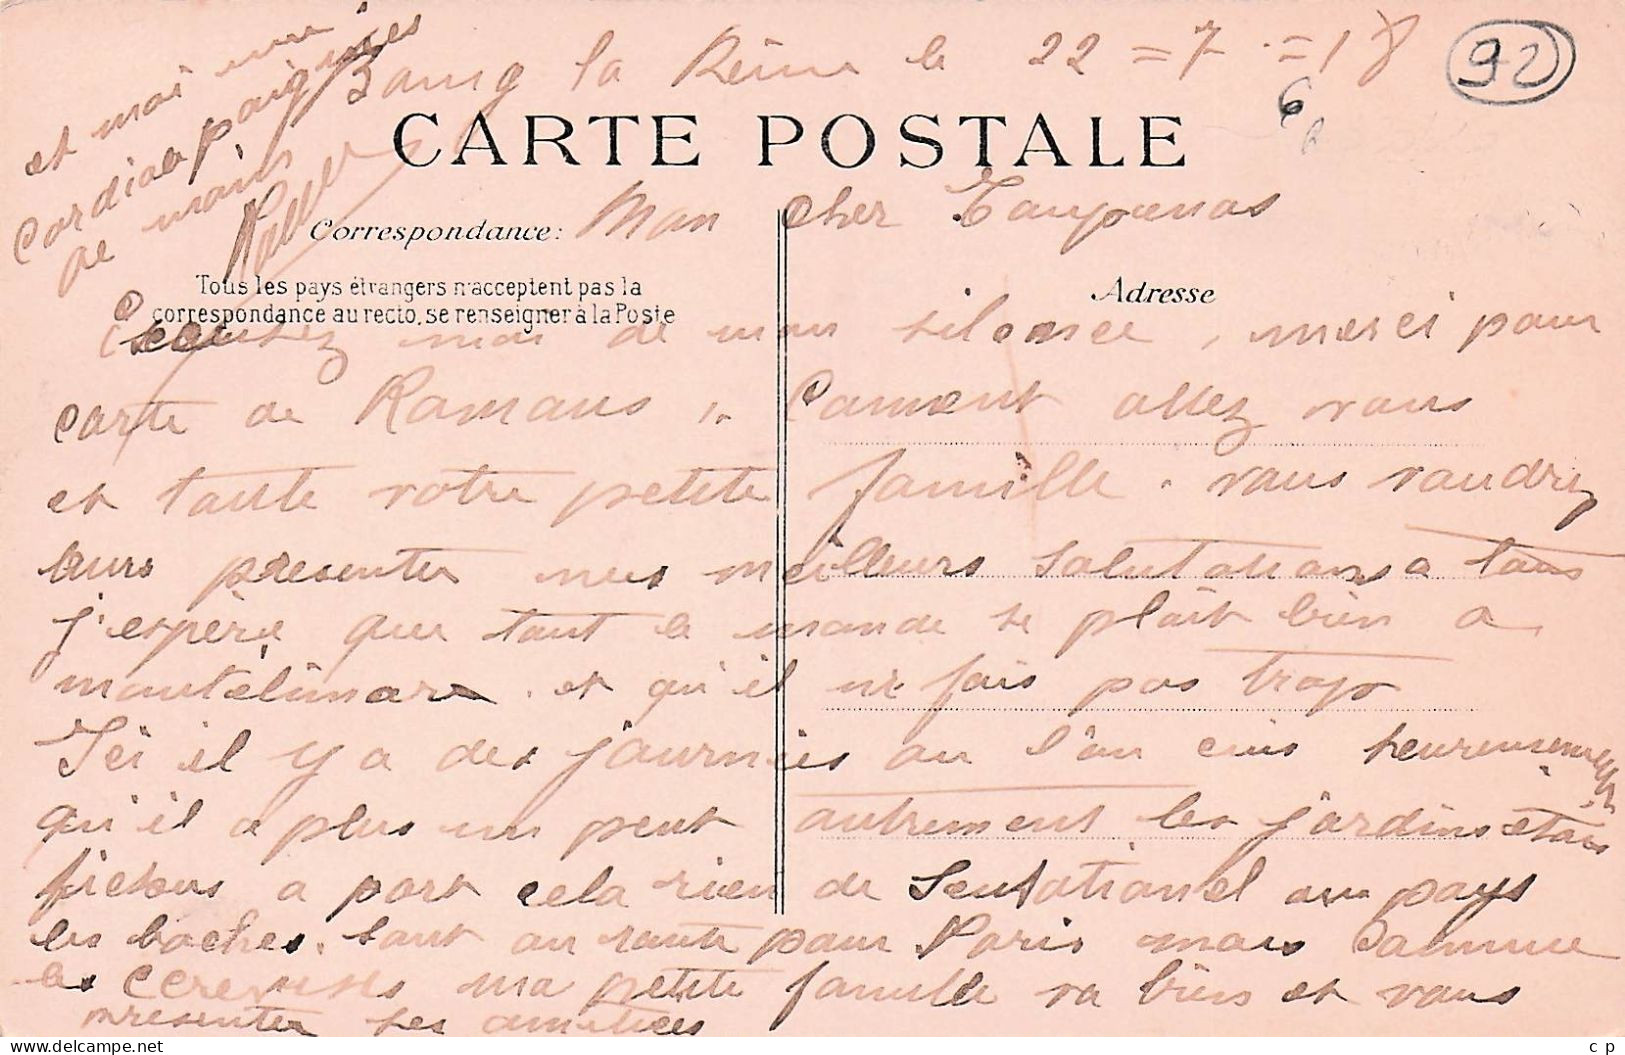 Bourg la Reine le 22 = 7 = 18
92
6
CARTE POSTALE
Correspondance:
Mon cher Taupenas
Tous les pays étrangers n'acceptent pas la
correspondance au recto, se renseigner à la Poste
Adresse
Excusez moi de mon silence, merci pour
carte de Romans, Coment allez vous
et toute votre petite famille. vous voudrez
leurs presenter mes meilleurs salutations a tous
j'espère que tout le monde se plait bien a
montélimare. et qu'il ne fais pas trop
Ici il y a des journées ou l'on cuis heureusement
qu'il a plus un peut autrement les jardins étais
fichus a part cela rien de sensationel au pays
les boches. sont en route pour Paris mais comme
les ma petite famille va bien et vous
presenter ses amitiées
et moi une
cordiale poignées
de mains
c p